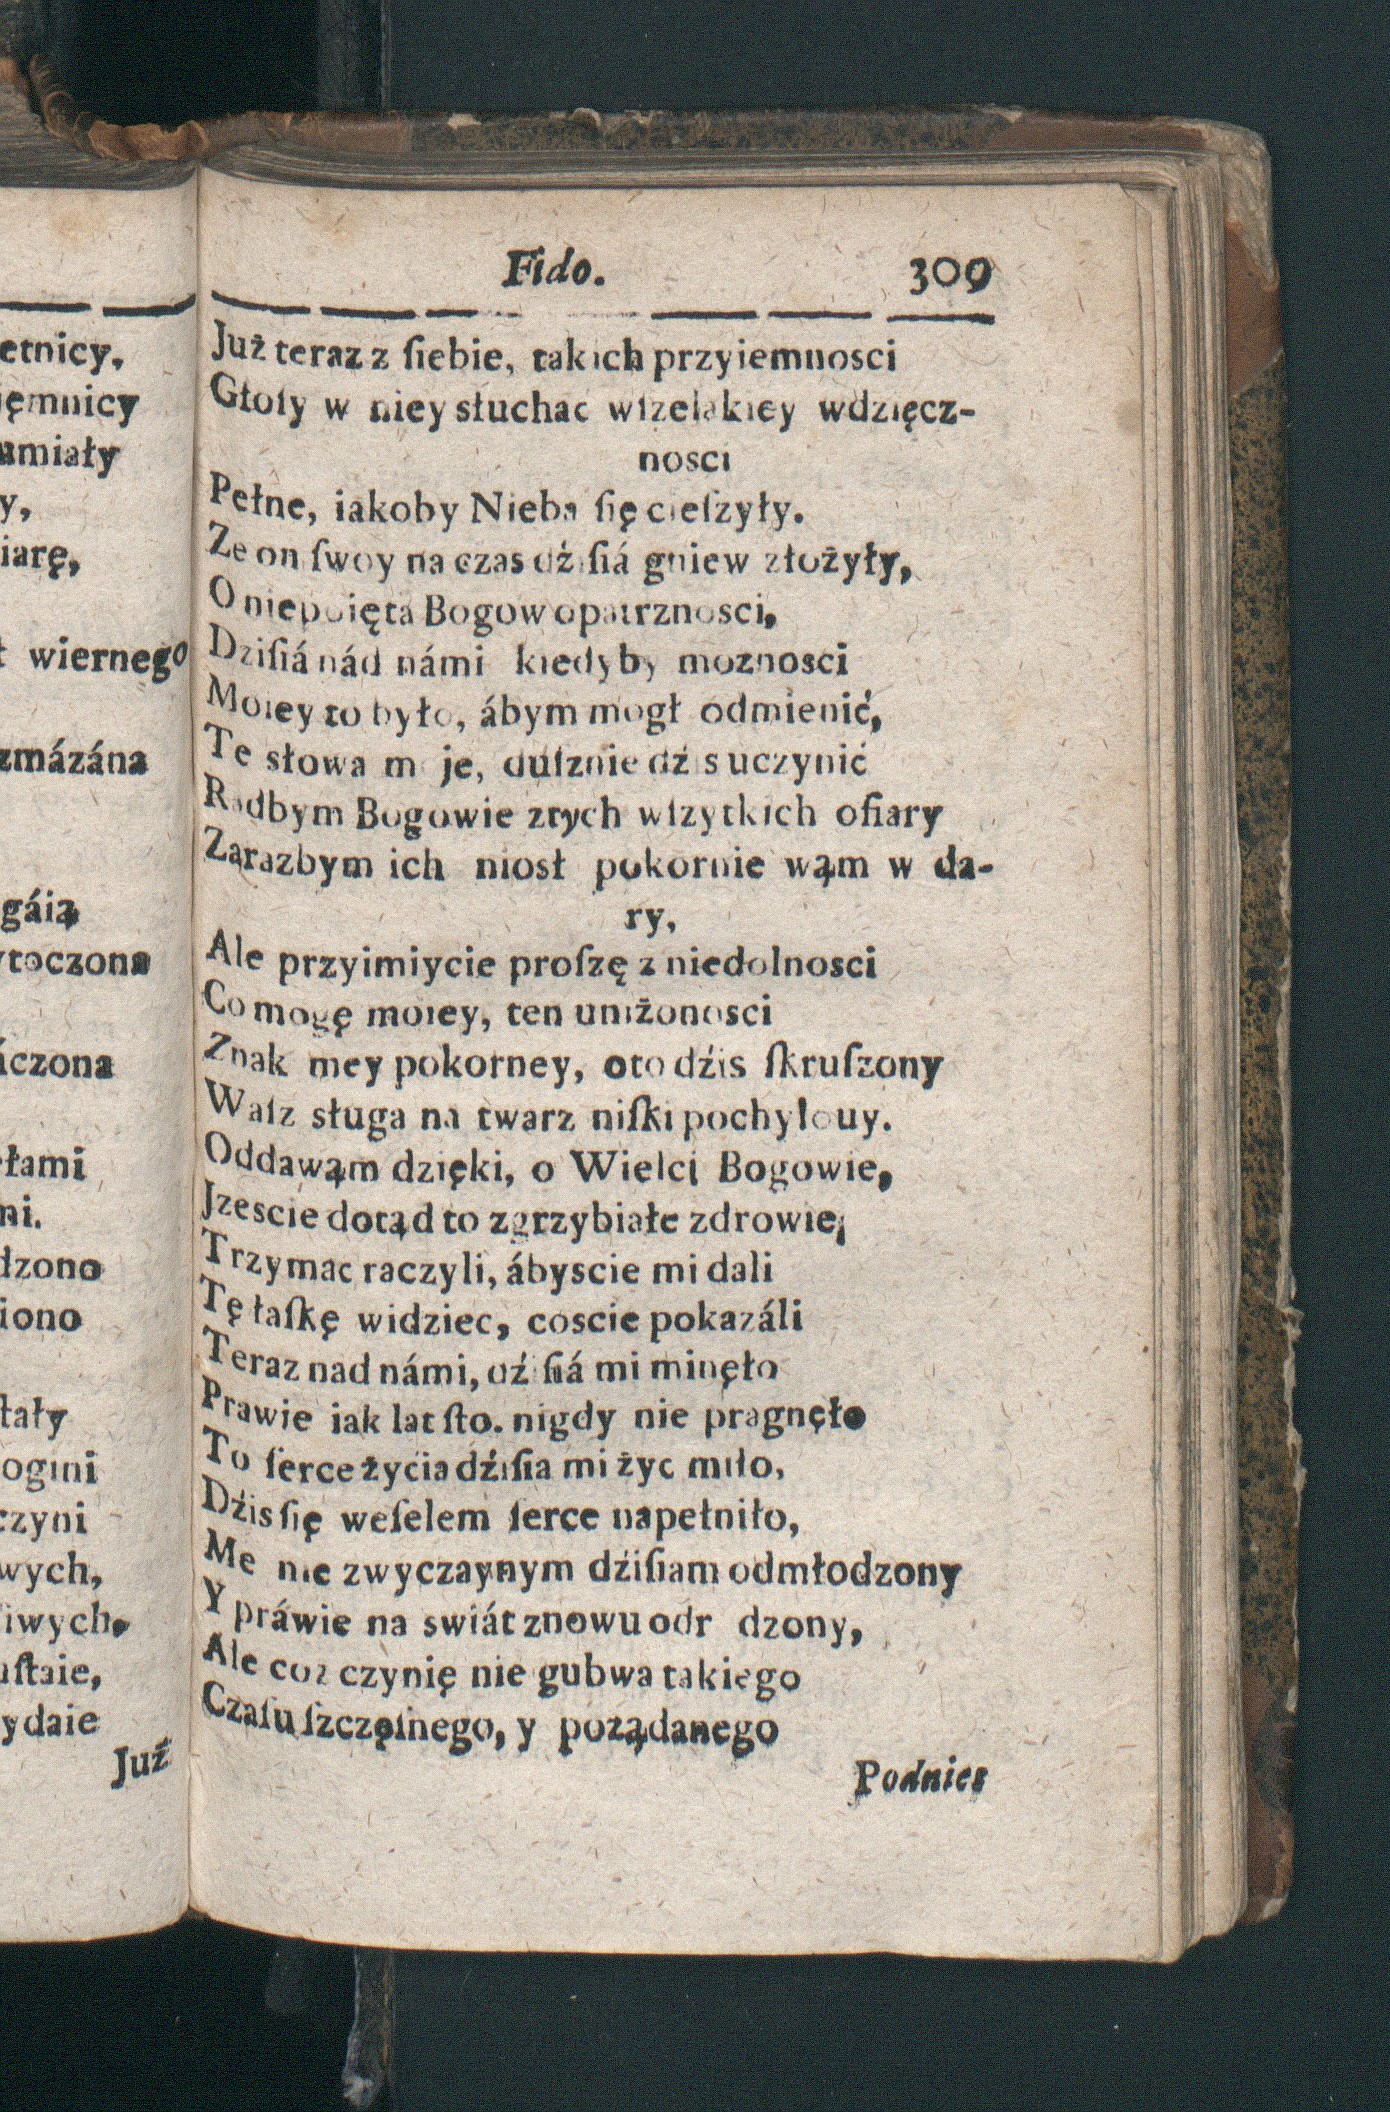 Fido. 309
Już teraz z ſiebie, takich przyiemnosci
Głoſy w niey słuchac wſzelakiey wdzięcz-
nosci
Pełne, iakoby Nieba ſię cieſzyły.
Ze on ſwoy na czas dźiſiá gniew złożyły,
O niepoięta Bogow opatrznosci,
Dziſiá nád námi kiedyby moznosci
Moiey to było, ábym mogł odmienić,
Te słowa m je, duſznie dźis uczynić
Radbym Bogowie ztych wſzytkich ofiary
Ząrazbym ich niosł pokornie wąm w da-
ry,
Ale przyimiycie proſzę z niedolnosci
Co mogę moiey, ten uniżonosci
Znak mey pokorney, oto dźis ſkruſzony
Waſz sługa na twarz niſki pochylouy.
Oddawąm dzięki, o Wielci Bogowie,
Jzescie dotąd to zgrzybiałe zdrowie,
Trzymac raczyli, ábyscie mi dali
Tę łaſkę widziec, coscie pokazáli
Teraz nad námi, dź ſiá mi minęło
Prawie iak lat ſto. nigdy nie pragnęło
To ſerce życia dźiſia mi życ miło,
Dźis ſię weſelem ſerce napełniło,
Me nie zwyczaynym dźiſiam odmłodzony
Y práwie na swiát znowu odr dzony,
Ale coz czynię nie gubwa takiego
Czaſu ſzczęſnego, y pożądanego
Podnies
etnicy,
ięmnicy
umiały
y,
iarę,
wiernego
zmázána
gáią
ytoczona
áczona
ełami
ni.
dzono
iono
tały
ogini
czyni
wych,
iwych,
uſtaie,
ydaie
Już